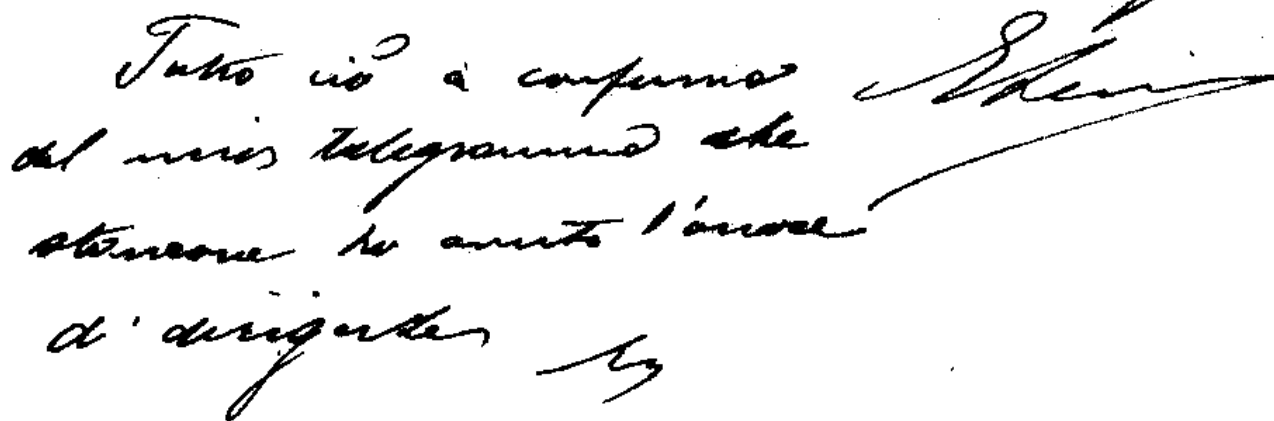 Tutto ciò a conferma
del mio telegramma che
stamane ho avuto l'onore
di dirigerle